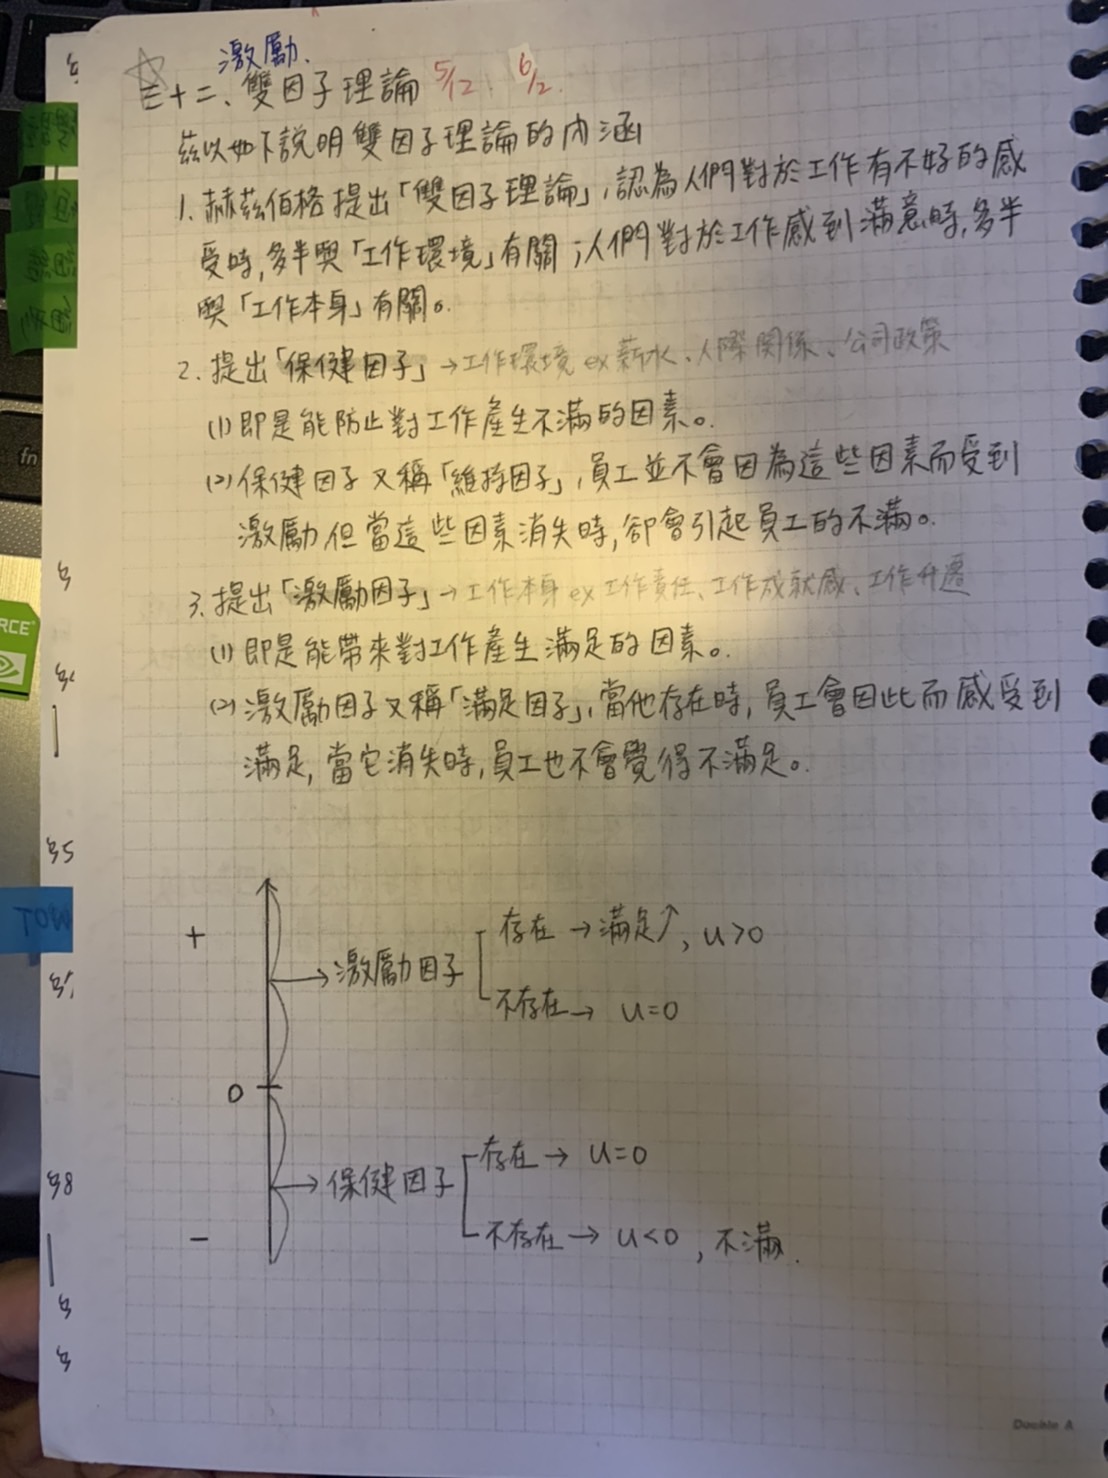 激勵.
三十二、雙因子理論 5/12、6/2.
茲以如下說明雙因子理論的內涵
1. 赫茲伯格提出「雙因子理論」,認為人們對於工作有不好的感
受時,多半與「工作環境」有關;人們對於工作感到滿意時,多半
與「工作本身」有關。
2. 提出「保健因子」→工作環境 ex 薪水、人際關係、公司政策
(1) 即是能防止對工作產生不滿的因素。
(2) 保健因子又稱「維持因子」,員工並不會因為這些因素而受到
激勵,但當這些因素消失時,卻會引起員工的不滿。
3. 提出「激勵因子」→工作本身 ex 工作責任、工作成就感、工作升遷
(1) 即是能帶來對工作產生滿足的因素。
(2) 激勵因子又稱「滿足因子」,當他存在時,員工會因此而感受到
滿足,當它消失時,員工也不會覺得不滿足。
+
存在 → 滿足↑, u>0
→激勵因子
不存在→ u=0
0
存在 → u=0
→保健因子
不存在 → u<0 , 不滿.
-
fn
RCE
Double A